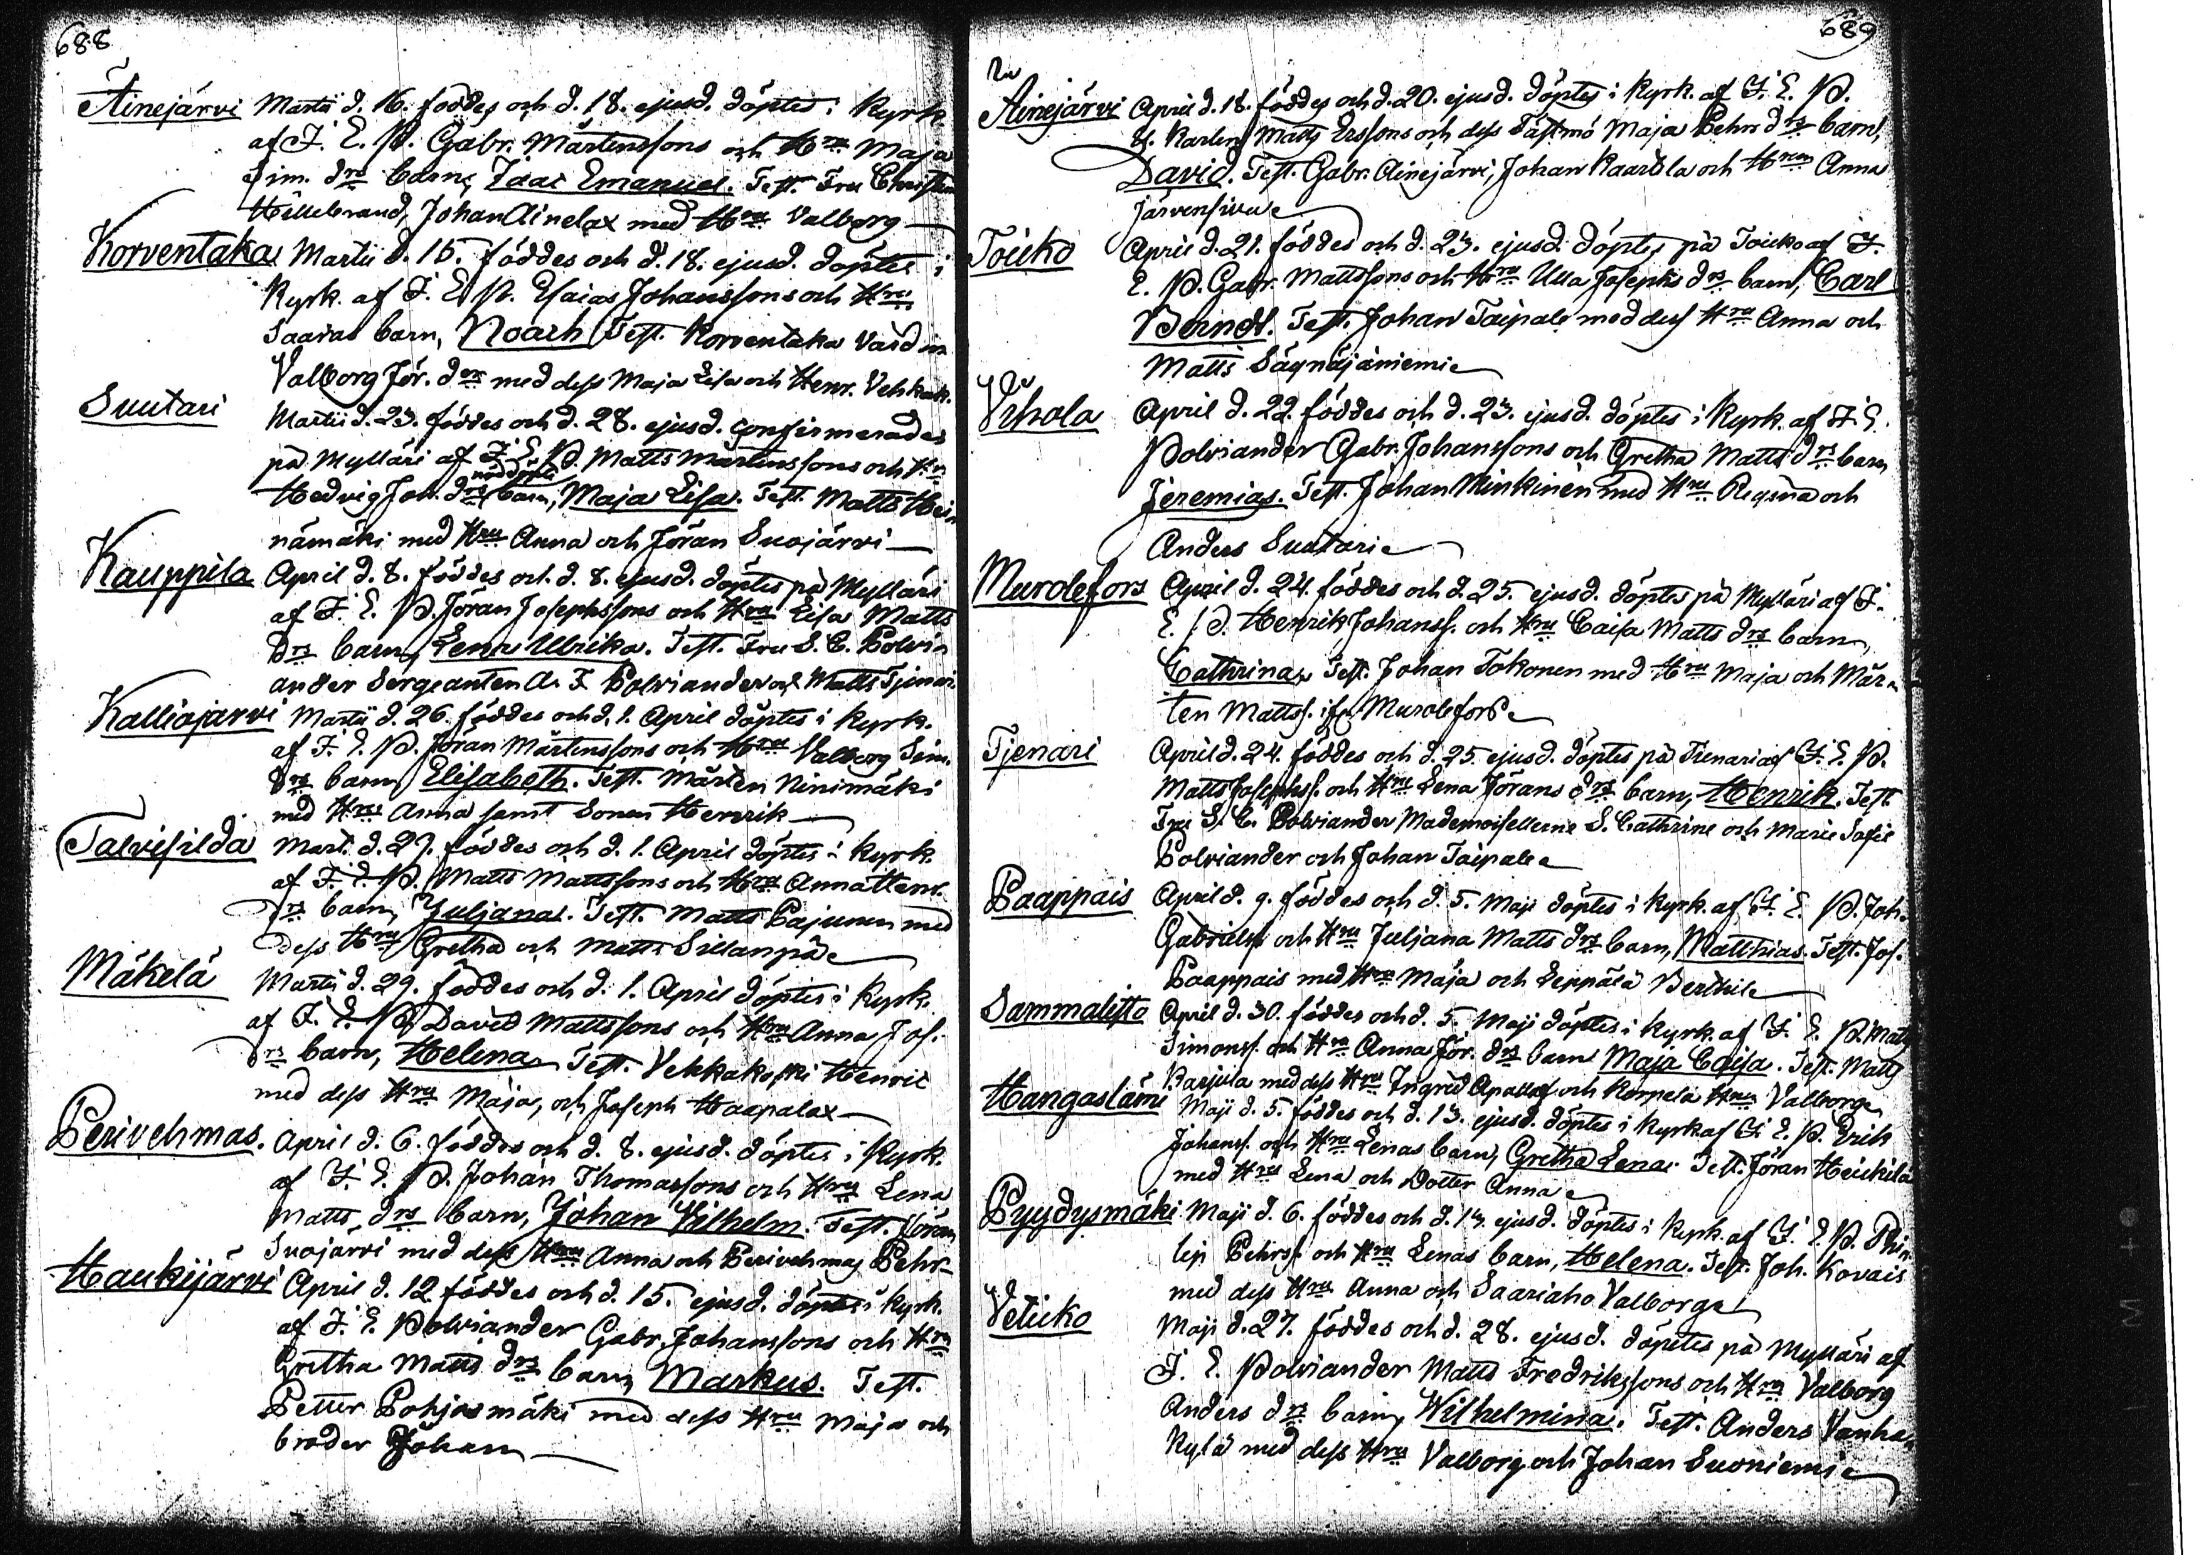 688
Äinejärvi Martii d. 16. föddes och d. 18. ejusd. döptes i Kyrk.
af J. E. P. Gabr. Mårtenssons och Hru Maja
Sim. drs barn, Isaac Emanuel. Test. Fru Christina
Hillebrand, Johan Ainelax med Hru Valborg
Korventaka Martii d. 15. föddes och d. 18. ejusd. döptes i
Kyrk. af J. E. P. Esaias Johanssons och Hru
Saaras barn, Noach. Test. Korventaka Värdin
Valborg Jör. der med dess Maja Lisa och Henr. Vehkak.
Suutari Martii d. 23. föddes och d. 28. ejusd. confirmerades
på Mylläri af J. E. P. Matts Mårtenssons och Hru
nöddöpte
Hedvig Joh. drs barn, Maja Lisa. Test. Matts Hei-
nämäki med Hru Anna och Jöran Suojärvi
Kauppila April d. 8. föddes och d. 8. ejusd. döptes på Mylläri
af J. E. P. Jöran Josephssons och Hru Lisa Matts
drs barn, Lena Ulrika. Test. Fru S. C. Polvi-
ander Sergeanten A. F. Polviander och Matts Tjenari.
Kalliojärvi Martii d. 26. föddes och d. 1. April döptes i Kyrk.
af J. E. P. Jöran Mårtenssons och Hru Valborg Sim.
drs barn, Elisabeth. Test. Mårten Ninimäki
med Hru Anna samt Sonen Henrik
Talvisilda Mart. d. 27. föddes och d. 1. April döptes i Kyrk.
af J. E. P. Matts Mattssons och Hru Anna Henr.
drs barn, Juljana. Test. Matts Pajunen med
dess Hru Gretha och Matts Sillanpää
Mäkelä Martii d. 29. föddes och d. 1. April döptes i Kyrk.
af J. E. P. David Mattssons och Hru Anna Jos.
drs barn, Helena. Test. Vehkakoski Henric
med dess Hru Maja, och Joseph Haapalax
Perivehmas. April d. 6. föddes och d. 8. ejusd. döptes i Kyrk.
af J. E. P. Johan Thomassons och Hru Lena
Matts drs barn, Johan Vilhelm. Test. Jöran
Suojärvi med dess Hru Anna och Perivehmas Pehr
Haukijärvi April d. 12. föddes och d. 15. ejusd. döptes i Kyrk.
af J. E. Polviander Gabr. Johanssons och Hru
Gretha Matts drs barn, Markus. Test.
Petter Pohjasmäki med dess Hru Maja och
broder Johan
689
Äinejärvi April d. 18. föddes och d. 20. ejusd. döptes i Kyrk. af J. E. P.
Karlen Matts Erssons och dess Fästmö Maja Pehrs drs barn,
David. Test. Gabr. Äinejärvi, Johan Kaarila och Hrun Anna
Järvensivu
Toicko April d. 21. föddes och d. 23. ejusd. döptes på Toicko af J.
E. P. Gabr. Mattssons och Hru Ulla Josephs drs barn, Carl
Berndt. Test. Johan Taipale med dess Hru Anna och
Matts Säynäjäniemi
Vihola April d. 22. föddes och d. 23. ejusd. döptes i Kyrk. af J. E.
Polviander Gabr. Johanssons och Gretha Matts drs barn
Jeremias. Test. Johan Minkinen med Hru Regina och
Anders Suutari
Murolefors April d. 24. föddes och d. 25. ejusd. döptes på Mylläri af J.
E. P. Henrik Johanss. och Hru Caisa Matts drs barn,
Cathrina. Test. Johan Tokonen med Hru Maja och Mår-
ten Mattss. ifr. Murolefors
Tjenari April d. 24. föddes och d. 25. ejusd. döptes på Tienari af J. E. P.
Matts Josephss. och Hru Lena Jörans drs barn, Henrik. Test.
Fru S. C. Polviander Mademoisellerne S. Cathrine och Marie Sofie
Polviander och Johan Taipale
Paappais April d. 9. föddes och d. 5. Maji döptes i Kyrk. af J. E. P. Joh.
Gabrielss. och Hru Juljana Matts drs barn, Matthias. Test. Jos.
Paappais med Hru Maja och Leppälä Berthil
Sammalisto April d. 30. föddes och d. 5. Maji döptes i Kyrk. af J. E. P. Matts
Simonss. och Hru Anna Jör. drs barn Maja Caisa. Test. Matts
Parjula med dess Hru Ingrid och Korpela Hru Valborg
Hangaslami Maji d. 5. föddes och d. 13. ejusd. döptes i Kyrk af J. E. P. Erik
Johanss. och Hru Lenas barn, Gretha Lena. Test. Jöran Heickilä
med Hru Lena och Dotter Anna
Pyydysmäki Maji d. 6. föddes och d. 13. ejusd. döptes i Kyrk. af J. E. P. Phi-
lip Pehrss. och Hru Lenas barn, Helena. Test. Joh. Kovais
med dess Hru Anna och Saariaho Valborg
Veticko Maji d. 27. föddes och d. 28. ejusd. döptes på Mylläri af
J. E. Polviander Matts Fredrikssons och Hru Valborg
Anders drs barn, Wilhelmina. Test. Anders Vanha-
kylä med dess Hru Valborg och Johan Suoniemi